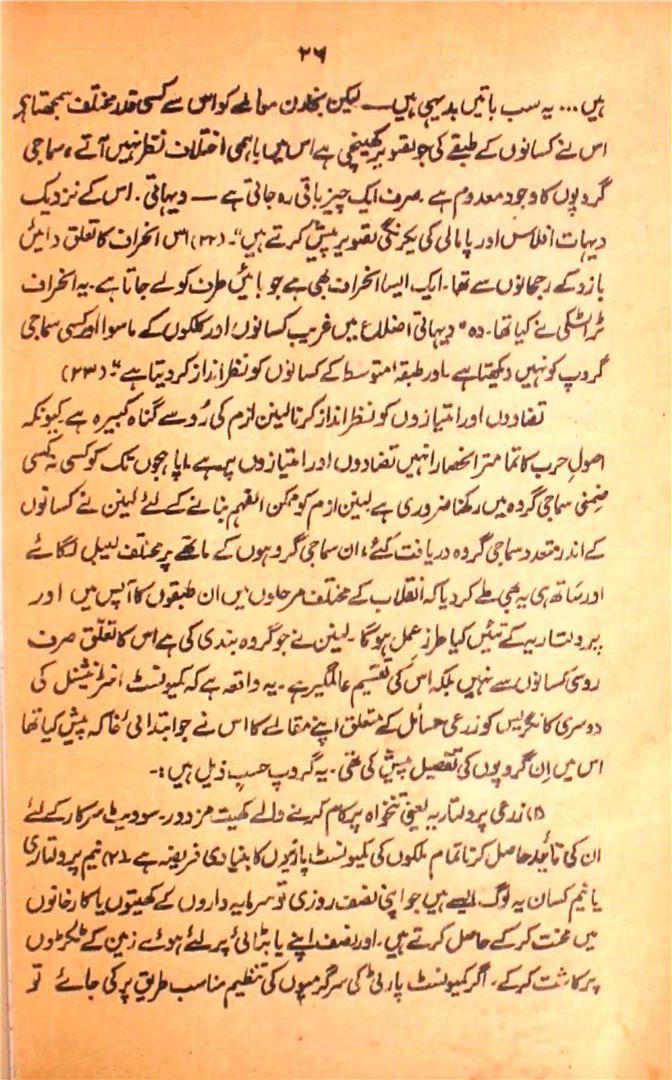 ۲۶
ہیں ... یہ سب باتیں بدیہی ہیں — لیکن بخارن معاملے کو اس سے کسی قدر مختلف سمجھتا ہے
اس نے کسانوں کے طبقے کی جو تصویر کھینچی ہے اس میں باہمی اختلاف نظر نہیں آتے، سماجی
گروپوں کا وجود معدوم ہے صرف ایک چیز باقی رہ جاتی ہے — دیہاتی۔ اس کے نزدیک
دیہات افلاس اور پامالی کی یکرنگی تصویر پیش کرتے ہیں"۔ (۲۲) اس انحراف کا تعلق دائیں
بازو کے رجحانوں سے تھا۔ ایک ایسا انحراف بھی ہے جو بائیں طرف کو لے جاتا ہے۔ یہ انحراف
ٹراٹسکی نے کیا تھا۔ وہ "دیہاتی اضلاع میں غریب کسانوں اور کلکوں کے ماسوا اور کسی سماجی
گروپ کو نہیں دیکھتا ہے۔ اور طبقہ متوسط کے کسانوں کو نظر انداز کر دیتا ہے"۔ (۲۳)
تضادوں اور امتیازوں کو نظر انداز کرنا لینن ازم کی رُو سے گناہ کبیرہ ہے۔ کیونکہ
اصول حرب کا تمام تر انحصار انہیں تضادوں اور امتیازوں پر ہے۔ اپاہجوں تک کو کسی نہ کسی
ضمنی سماجی گروہ میں رکھنا ضروری ہے لینن ازم کو ممکن الفہم بنانے کے لئے لینن نے کسانوں
کے اندر متعدد سماجی گروہ دریافت کئے، ان سماجی گروہوں کے ماتھے پر مختلف لیبل لگائے
اور ساتھ ہی یہ بھی طے کر دیا کہ انقلاب کے مختلف مرحلوں میں ان طبقوں کا آپس میں اور
پرولتاریہ کے تئیں کیا طرز عمل ہوگا۔ لینن نے جو گروہ بندی کی ہے اس کا تعلق صرف
روسی کسانوں سے نہیں بلکہ اس کی تقسیم عالمگیر ہے۔ یہ واقعہ ہے کہ کمیونسٹ انٹرنیشنل کی
دوسری کانگریس کو زرعی مسائل کے متعلق اپنے مقالے کا اس نے جو ابتدائی خاکہ پیش کیا تھا
اس میں اِن گروپوں کی تفصیل پیش کی تھی۔ یہ گروپ حسب ذیل ہیں:-
(۱) زرعی پرولتاریہ یعنی تنخواہ پر کام کرنے والے کھیت مزدور۔ سوویٹ سرکار کے لئے
ان کی تائید حاصل کرنا تمام ملکوں کی کمیونسٹ پارٹیوں کا بنیادی فریضہ ہے (۲) نیم پرولتاری
یا نیم کسان یہ لوگ ایسے ہیں جو اپنی نصف روزی تو سرمایہ داروں کے کھیتوں یا کارخانوں
میں محنت کر کے حاصل کرتے ہیں۔ اور نصف اپنے یا بٹائی پر لئے ہوئے زمین کے ٹکڑوں
پر کاشت کر کے۔ اگر کمیونسٹ پارٹی کی سرگرمیوں کی تنظیم مناسب طریق پر کی جائے تو